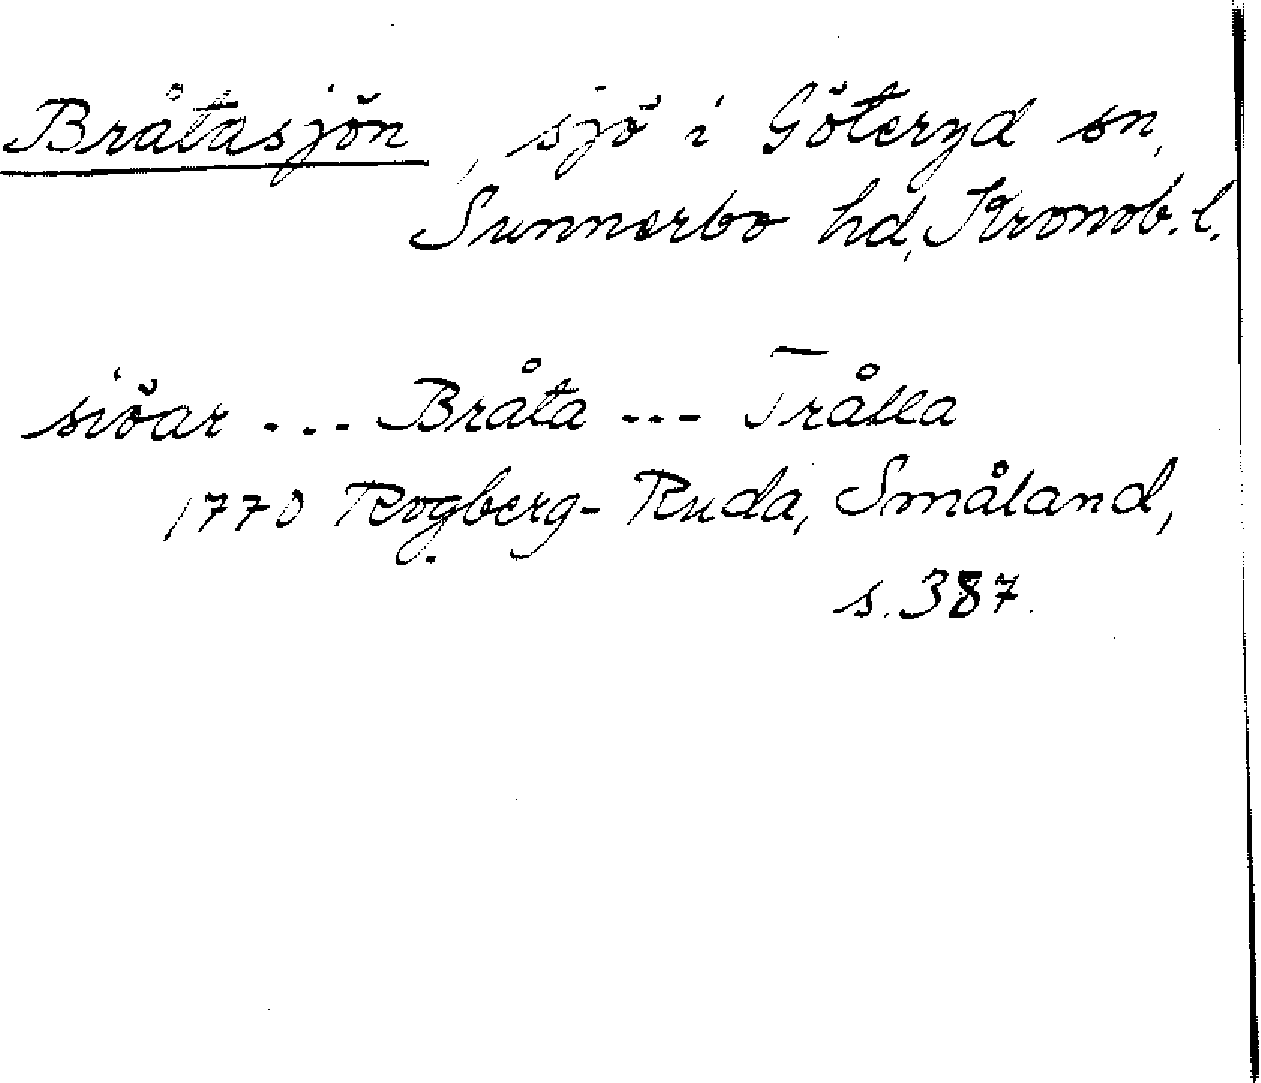 Bråtasjön, sjö i Göteryd sn,
Sunnerbo hd, Kronob. l.
siöar ... Bråta ... Trålla
1770 Rogberg-Ruda, Småland,
s. 387.